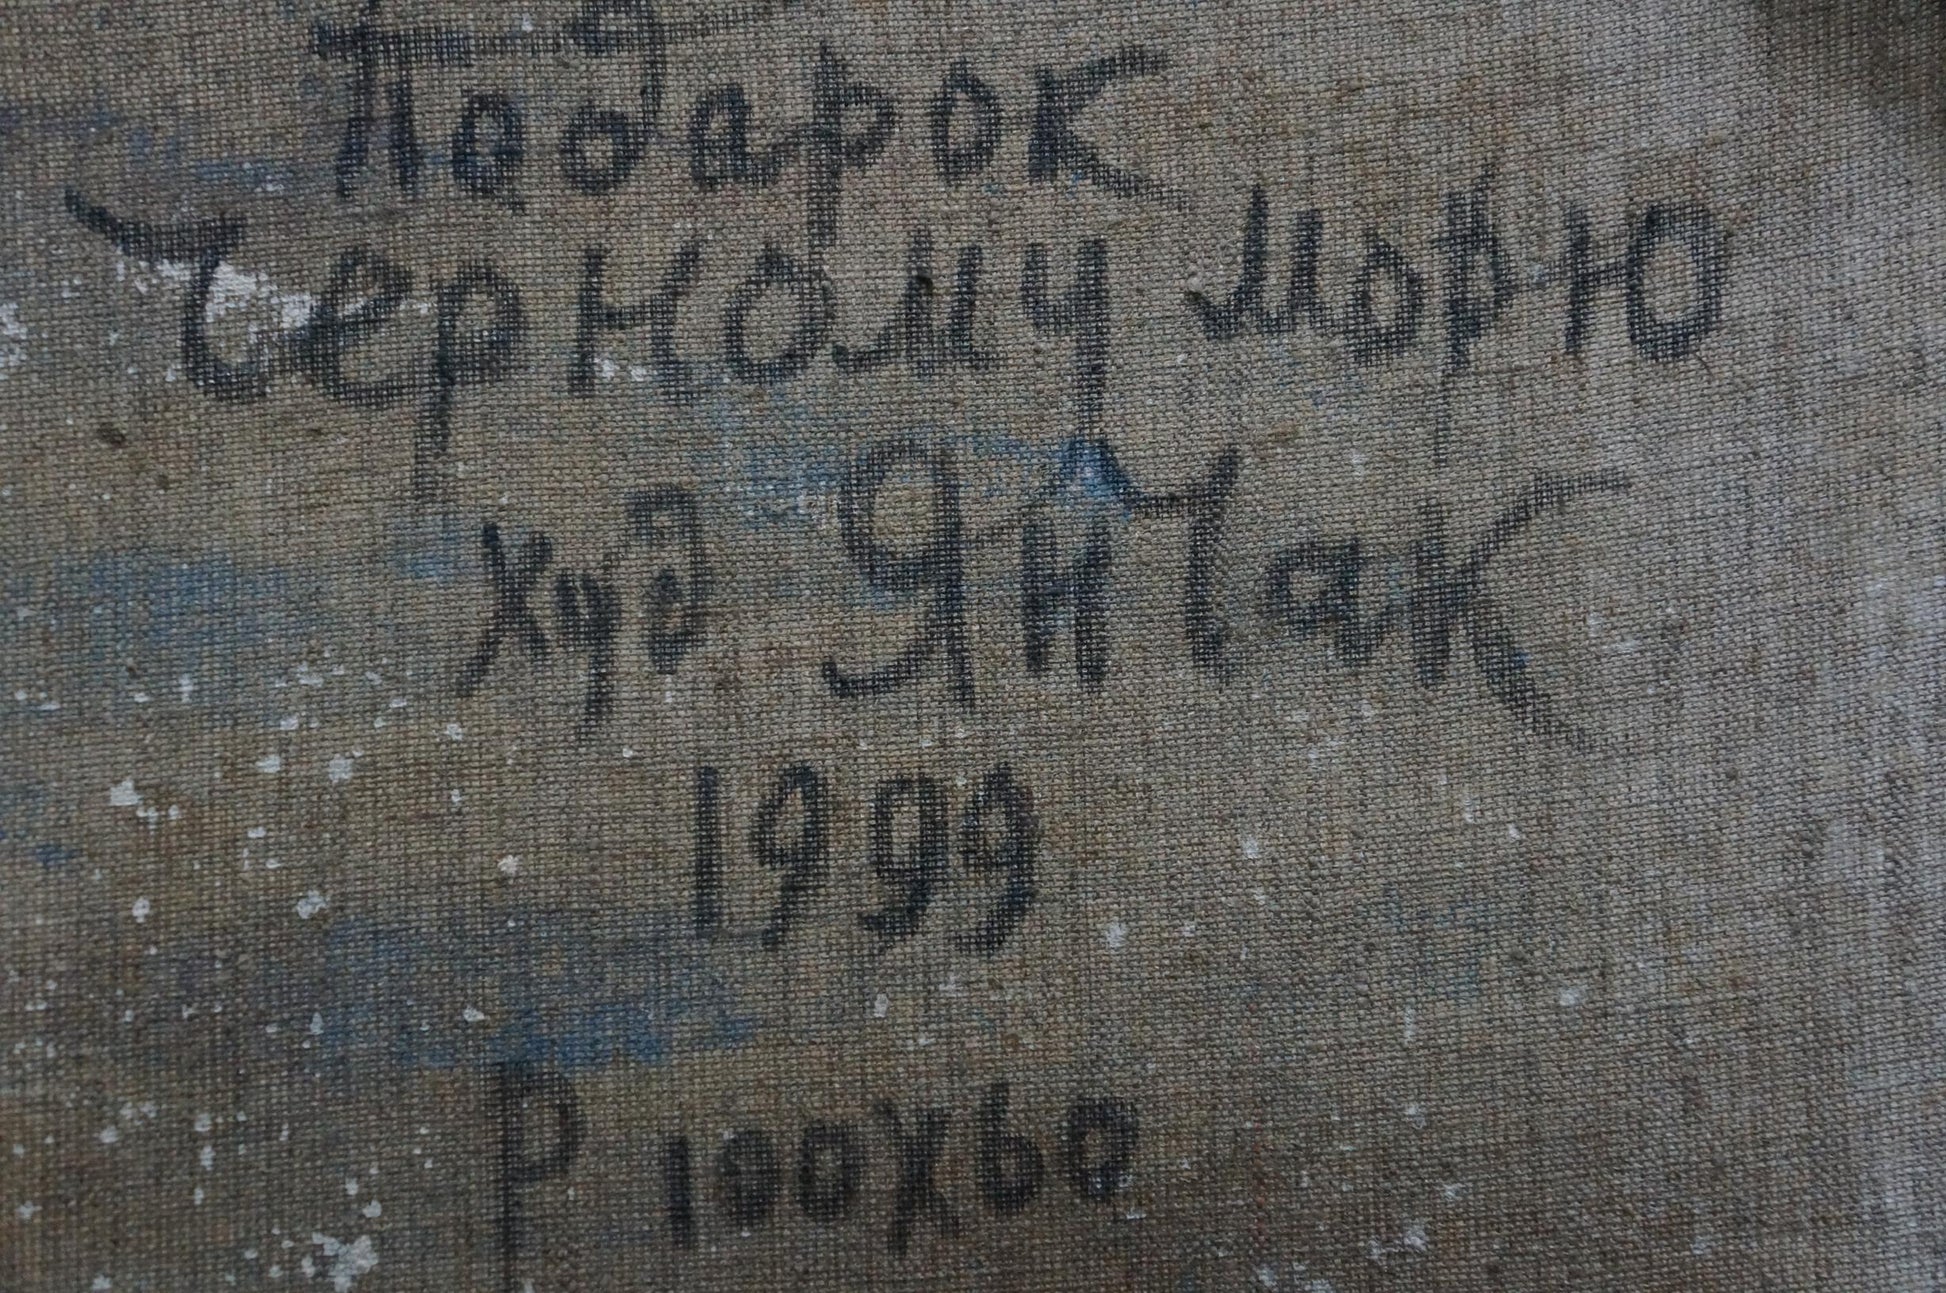 Подарок
Черному морю
худ Яйчак
1999
Р 100х60